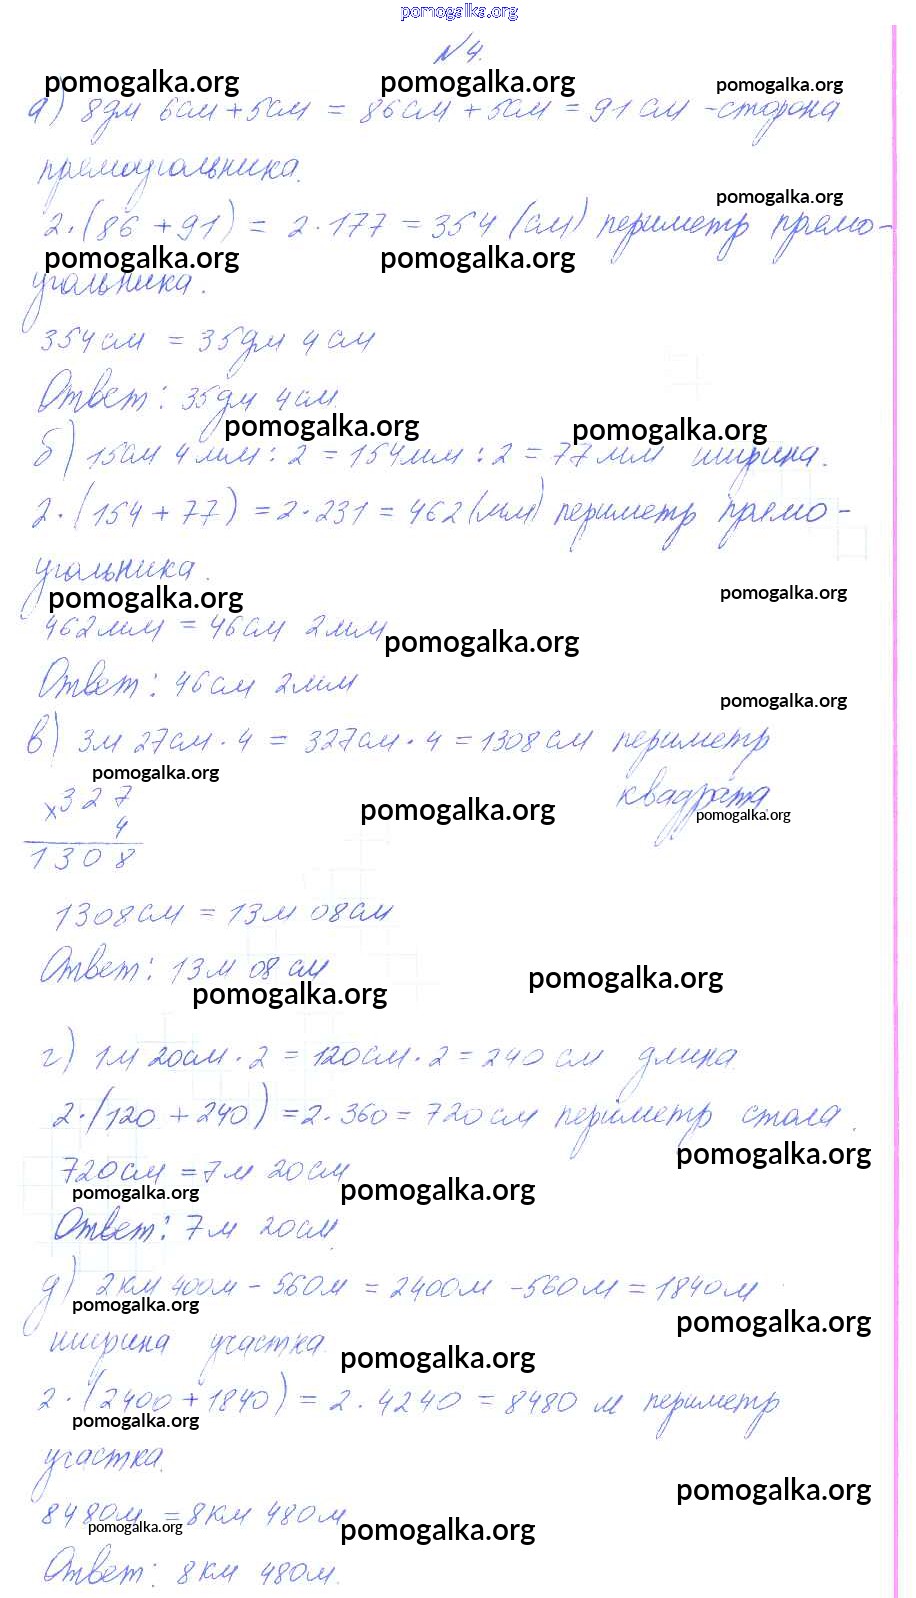 pomogalka.org
№4.
pomogalka.org pomogalka.org pomogalka.org
а) 8дм 6см + 5см = 86см + 5см = 91 см - сторона
прямоугольника.
pomogalka.org
2·(86 + 91) = 2·177 = 354 (см) периметр прямо-
pomogalka.org pomogalka.org
угольника.
354см = 35дм 4см
Ответ: 35дм 4см
pomogalka.org pomogalka.org
б) 15см 4мм : 2 = 154мм : 2 = 77мм ширина.
2·(154 + 77) = 2·231 = 462 (мм) периметр прямо-
угольника.
pomogalka.org pomogalka.org
462мм = 46см 2мм
pomogalka.org
Ответ: 46см 2мм
pomogalka.org
в) 3м 27см · 4 = 327см · 4 = 1308см периметр
pomogalka.org
квадрата
×327
pomogalka.org pomogalka.org
4
1308
1308см = 13м 08см
Ответ: 13м 08см
pomogalka.org pomogalka.org
г) 1м 20см · 2 = 120см · 2 = 240 см длина
2·(120 + 240) = 2·360 = 720см периметр стола.
pomogalka.org
720см = 7м 20см
pomogalka.org pomogalka.org
Ответ: 7м 20см
д) 2км 400м - 560м = 2400м - 560м = 1840м
pomogalka.org pomogalka.org
ширина участка.
pomogalka.org
2·(2400 + 1840) = 2·4240 = 8480 м периметр
pomogalka.org
участка.
pomogalka.org
8480м = 8км 480м
pomogalka.org pomogalka.org
Ответ: 8км 480м.